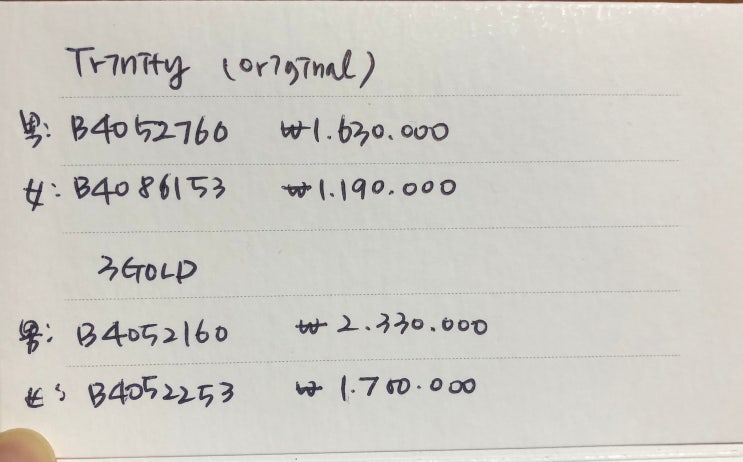 Trinity (original)
男: B4052760 ₩1.630.000
女: B4086153 ₩1.190.000
3GOLD
男: B4052160 ₩2.330.000
女: B4052253 ₩1.760.000